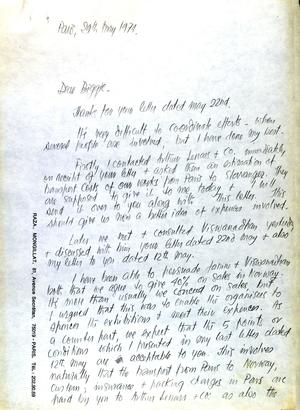 Paris, 29th May 1978.
Dear Brigge,
Thanks for your letter dated may 22nd.
It's very difficult to coordinate efforts - when
several people are involved, but I have done my best.
Firstly I contacted Lenars + Co. immediately
on receipt of your letter + asked them an estimation of
transport costs of our works from Paris to Stavanger. They
are supposed to give it to me today + I will
send it over to you along with this letter. This
should give us even a better idea of expenses involved.
Later we met + consulted Viswanadhan yesterday
+ discussed with him your letter dated 22nd may + also
my letter to you dated 12th may.
I have been able to persuade + Viswanadhan
both that we agree to give 40% on sales in Norway.
It's more than usually we concede on sales, but
I urged that this was to enable the organisers to
the exhibition + meet their expenses.
a counter part, we expect that the 5 points or
conditions which I presented in my last letter dated
12th may are acceptable to you. This involves
naturally that the transport from Paris to Norway,
custom, insurance + packing charges in Paris are
paid by you to Lenars + Co. as also the
RAZA, MONGILLAT, 81, Avenue Secrétan, 75019 - PARIS. Tél.: 202.90.69